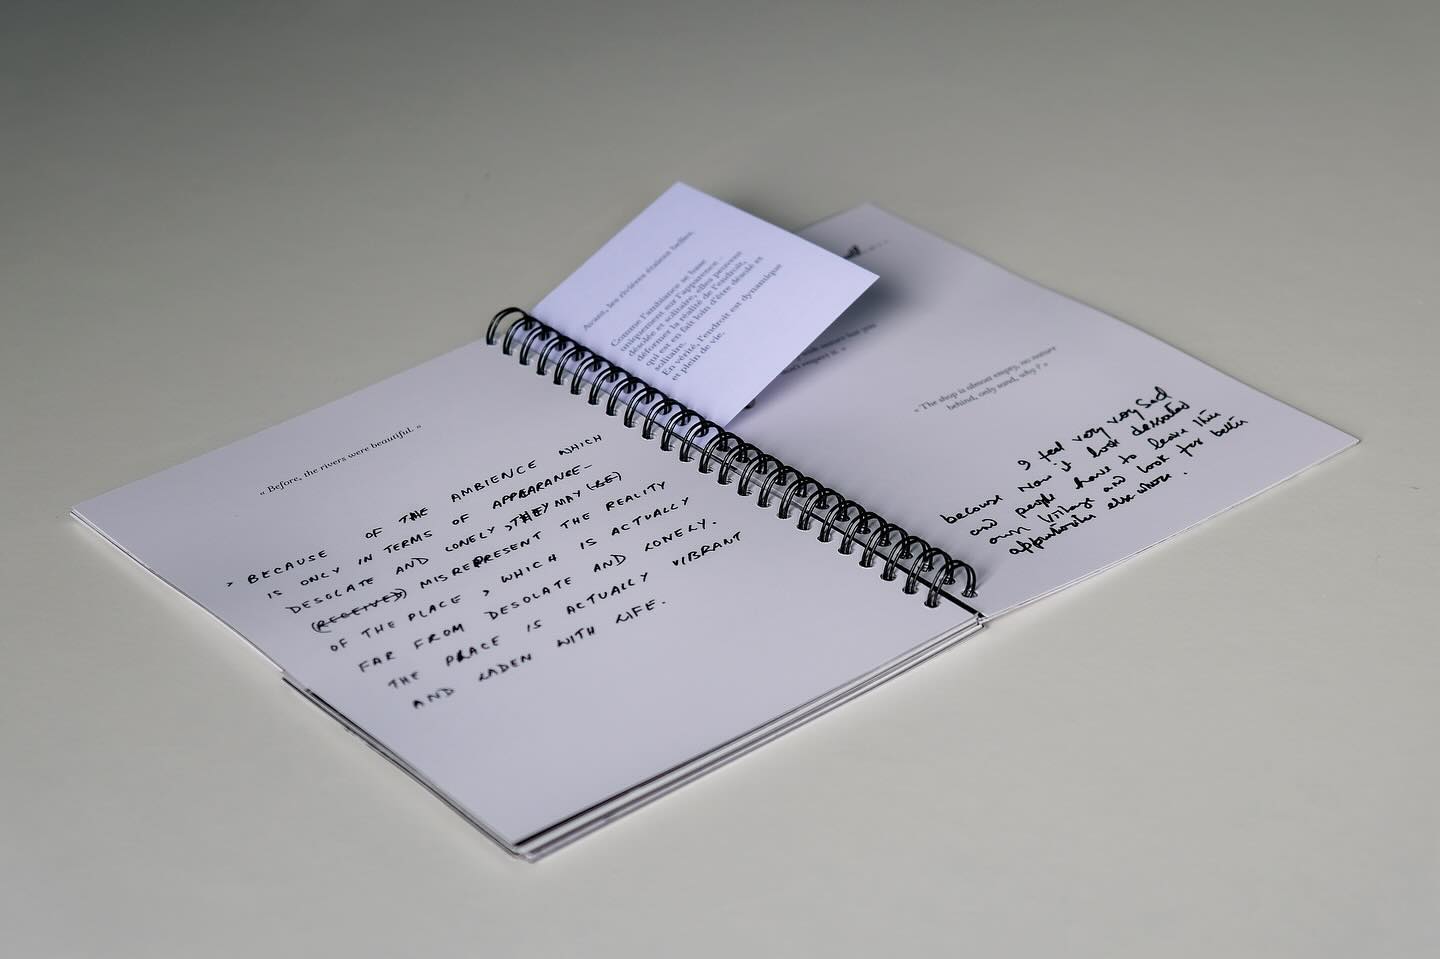 « Before, the rivers were beautiful. »
> BECAUSE OF THE AMBIENCE WHICH
IS ONLY IN TERMS OF APPEARANCE-
DESOLATE AND LONELY, THEY MAY
MISREPRESENT THE REALITY
OF THE PLACE, WHICH IS ACTUALLY
FAR FROM DESOLATE AND LONELY.
THE PLACE IS ACTUALLY VIBRANT
AND LADEN WITH LIFE.
Avant, les rivières étaient belles.
Comme l'ambiance se base
uniquement sur l'apparence -
désolée et solitaire, elles peuvent
déformer la réalité de l'endroit,
qui est en fait loin d'être désolé et
solitaire.
En vérité, l'endroit est dynamique
et plein de vie.
expect it »
« The shop is almost empty, no nature
behind, only sand, why ? »
I feel very very sad
because now it look dessolated
and people have to leave this
own village and look for better
elsewhere.